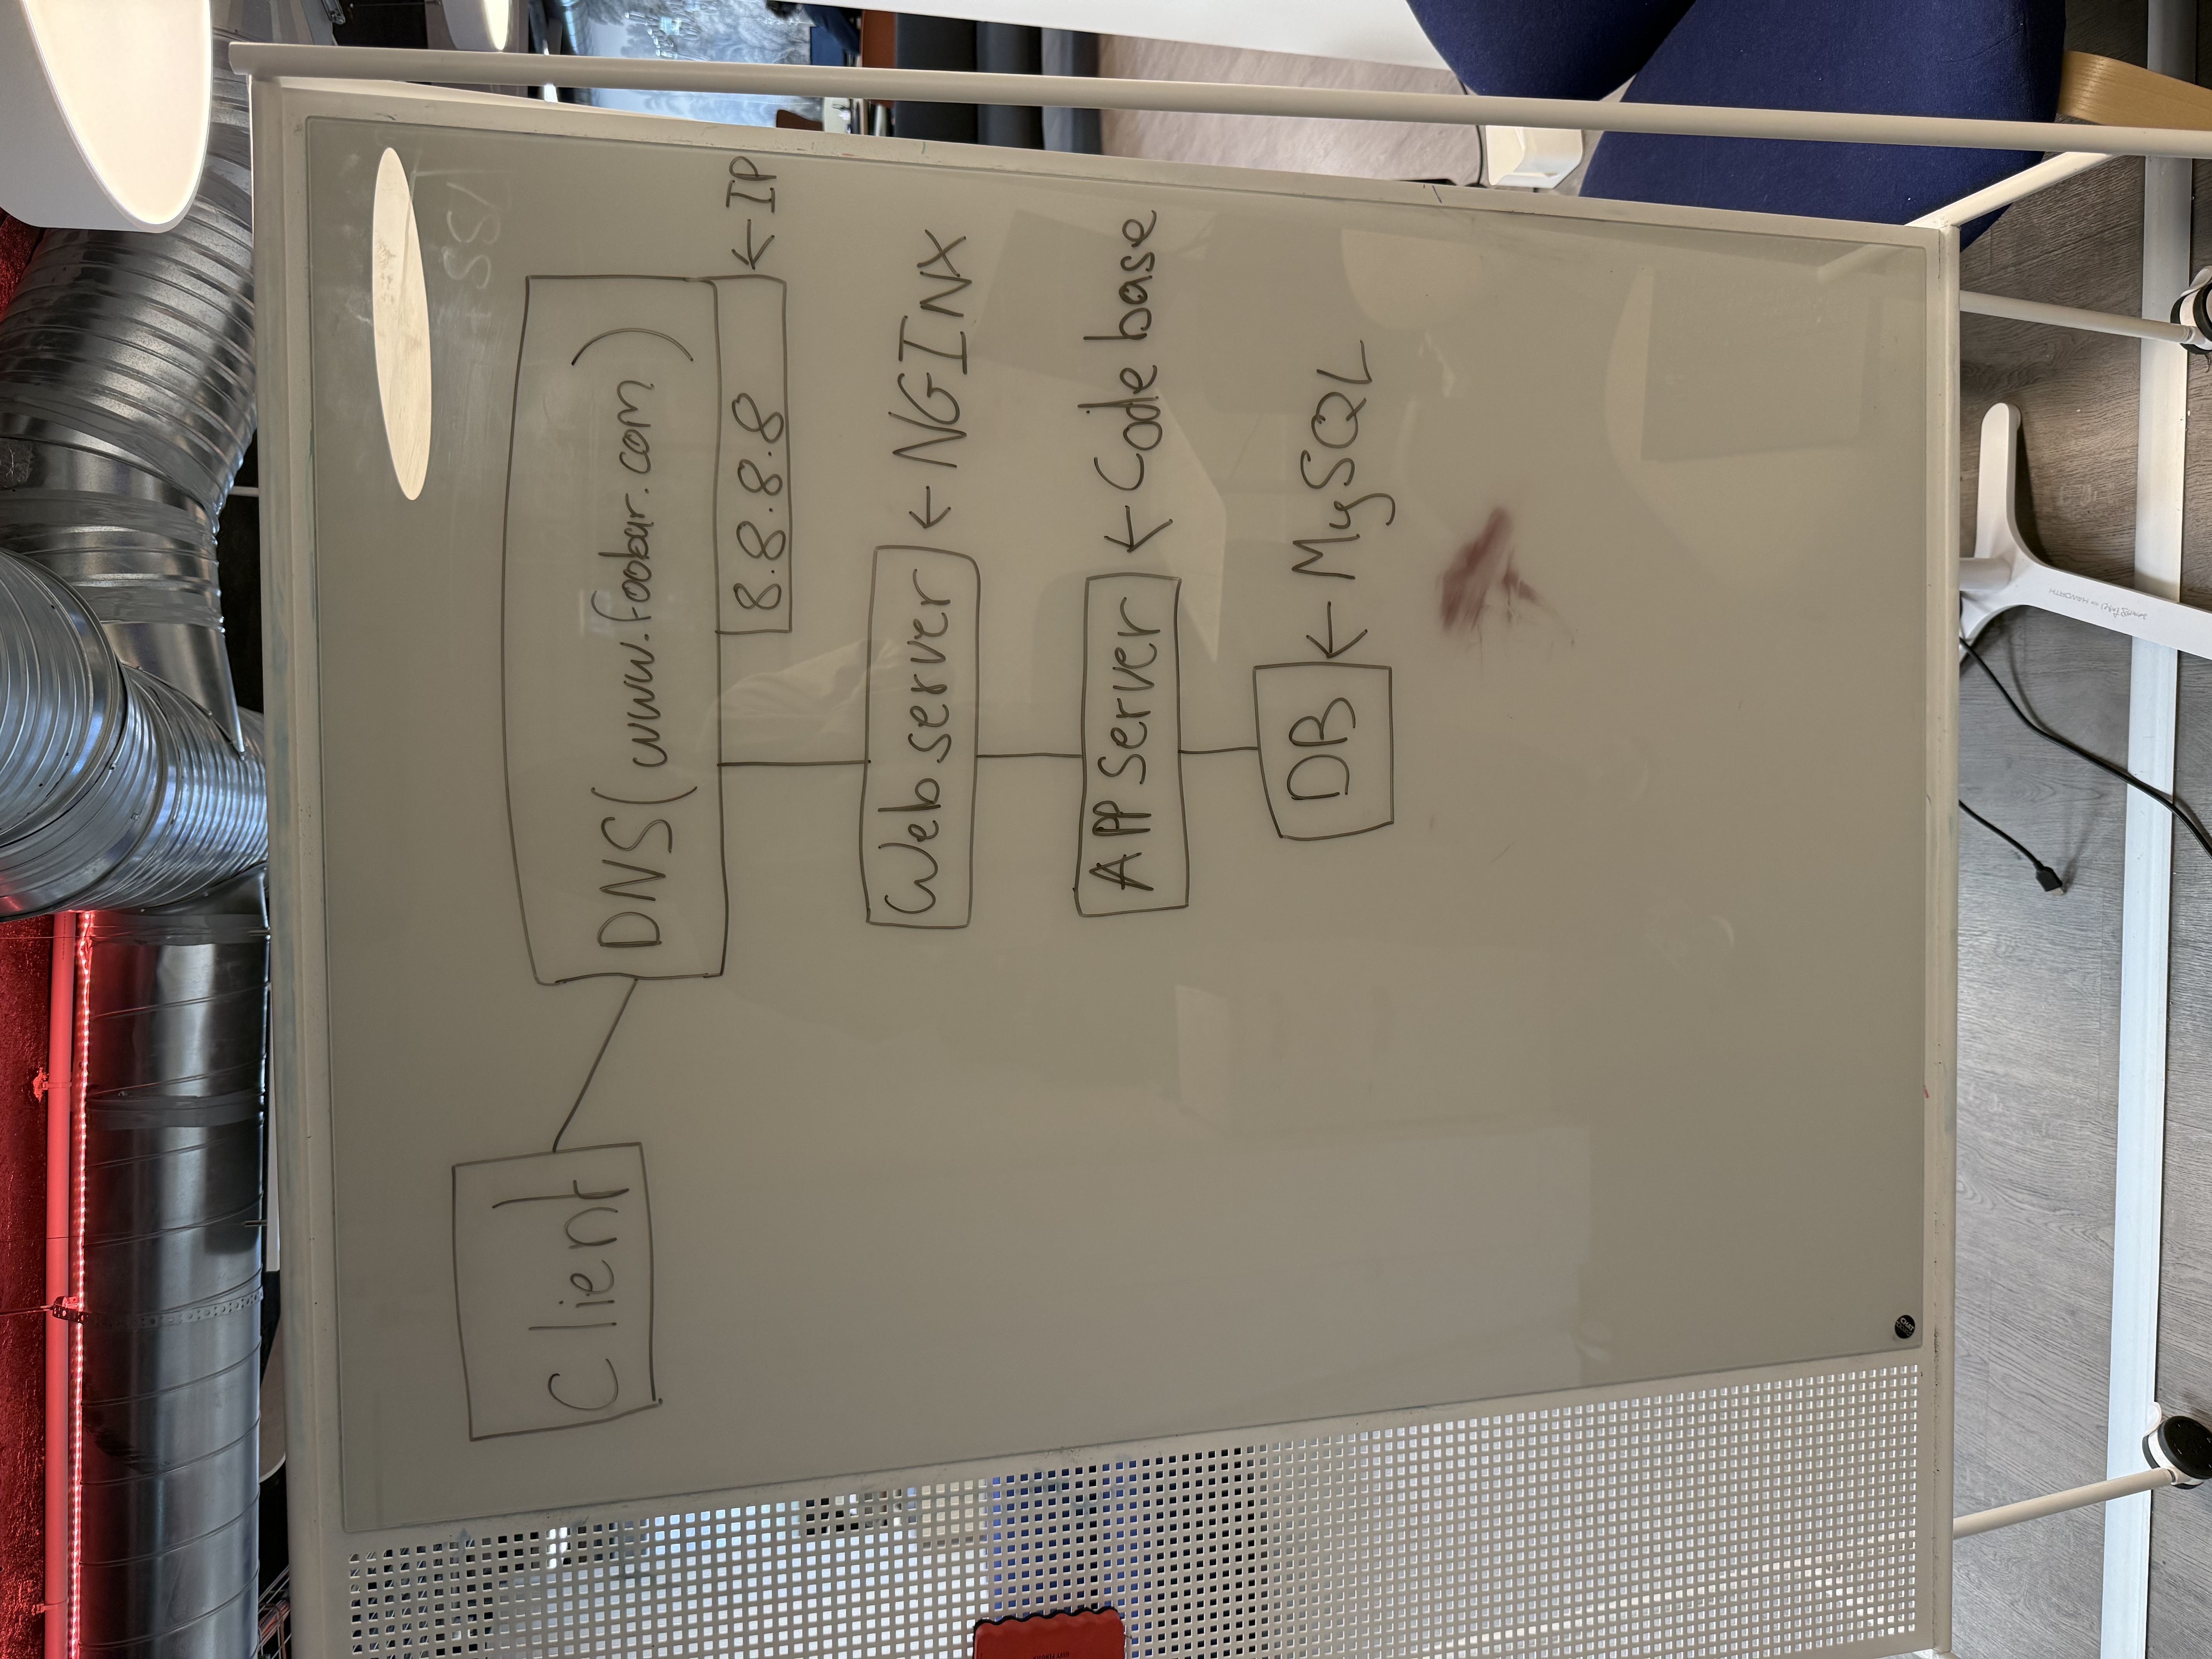 SSl
Client
DNS(www.foobar.com)
8.8.8.8 ← IP
Web server ← NGINX
APP Server ← Code base
DB ← MySQL